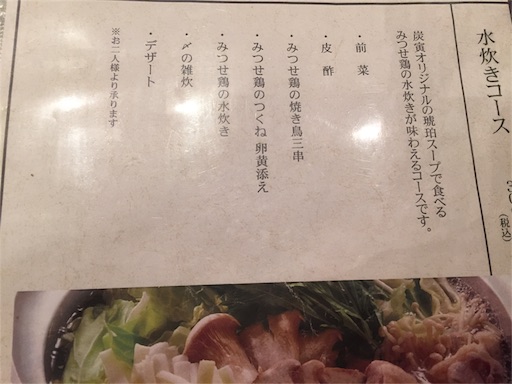 水炊きコース
(税込)
炭寅オリジナルの琥珀スープで食べる
みつせ鶏の水炊きが味わえるコースです。
・前菜
・皮酢
・みつせ鶏の焼き鳥三串
・みつせ鶏のつくね 卵黄添え
・みつせ鶏の水炊き
・〆の雑炊
・デザート
※お二人様より承ります